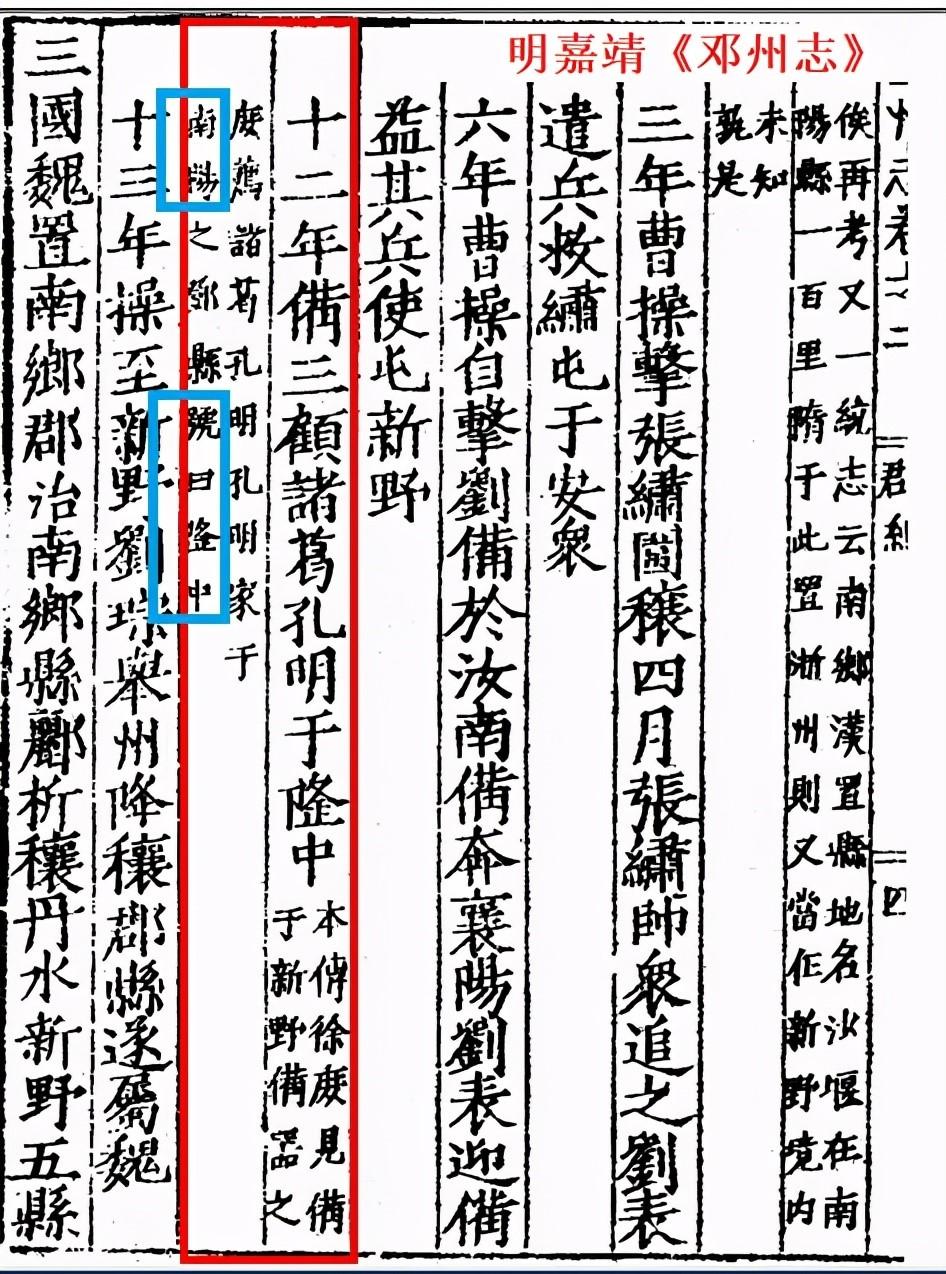 明嘉靖《邓州志》
君紀
四
侯再考又一統志云南鄉漢置縣地名沙堰在南
陽縣一百里隋于此置淅州則又當作新野境内
未知
孰是
三年曹操擊張繡圍穰四月張繡師衆追之劉表
遣兵救繡屯于安衆
六年曹操自擊劉備於汝南備奔襄陽劉表迎備
益其兵使屯新野
十二年備三顧諸葛孔明于隆中
本傳徐庶見備
于新野備器之
庶薦諸葛孔明孔明家于
南陽之鄧縣號曰隆中
十三年操至新野劉琮舉州降穰鄧縣遂屬魏
三國魏置南鄉郡治南鄉縣酈析穰丹水新野五縣